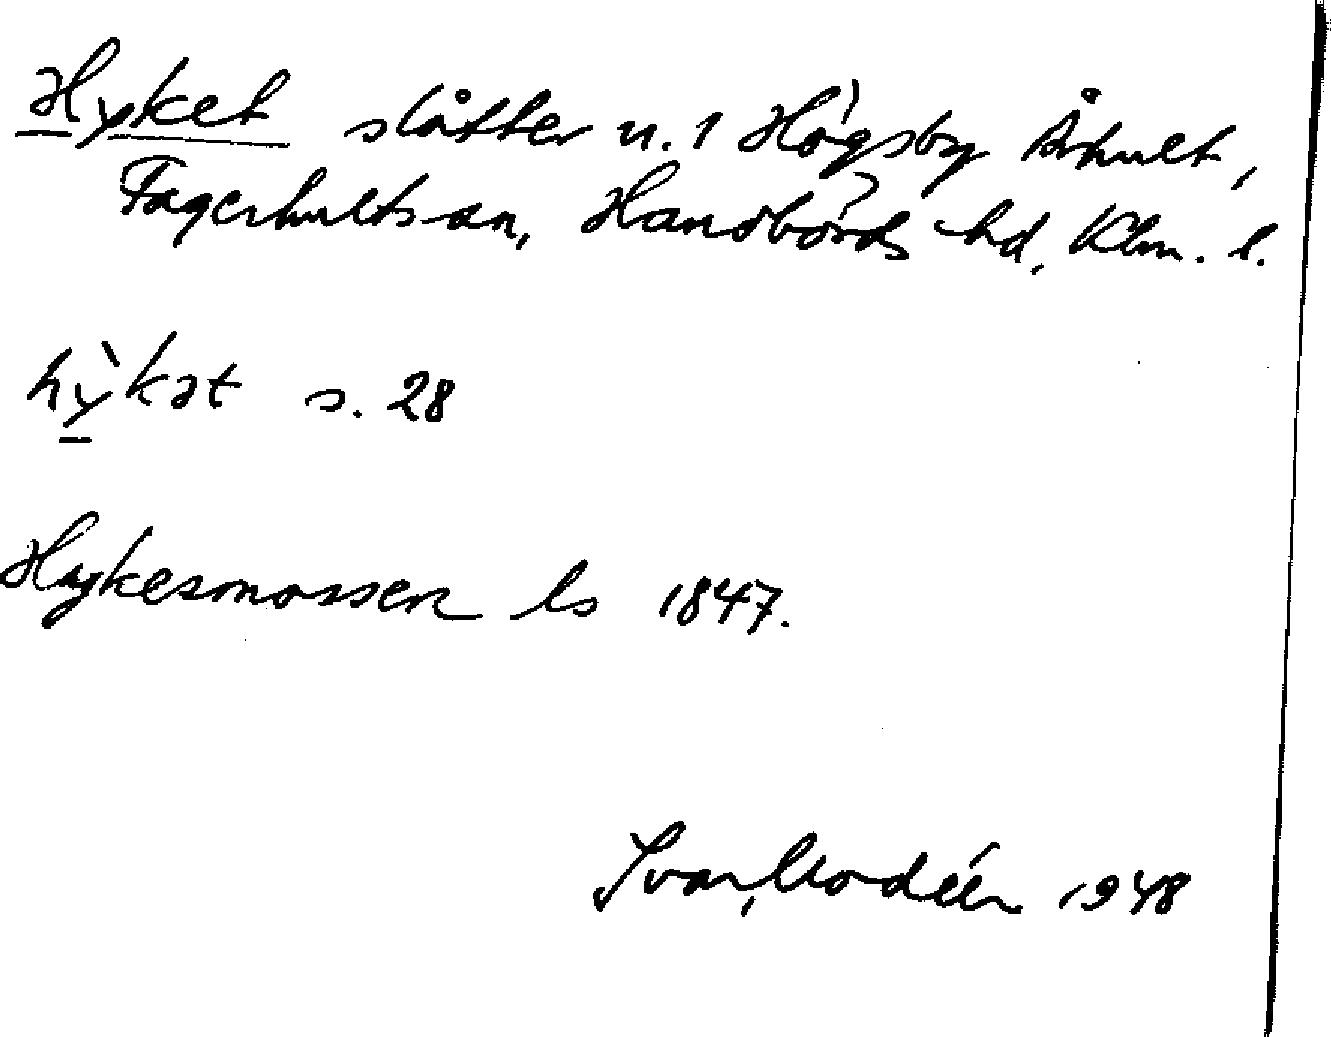 Hyket slåtter u. 1 Högsby Århult,
Fagerhults sn, Handbörds hd, Klm. l.
hỳkət s. 28
Hykesmossen ls 1847.
Ivar Modéer 1948